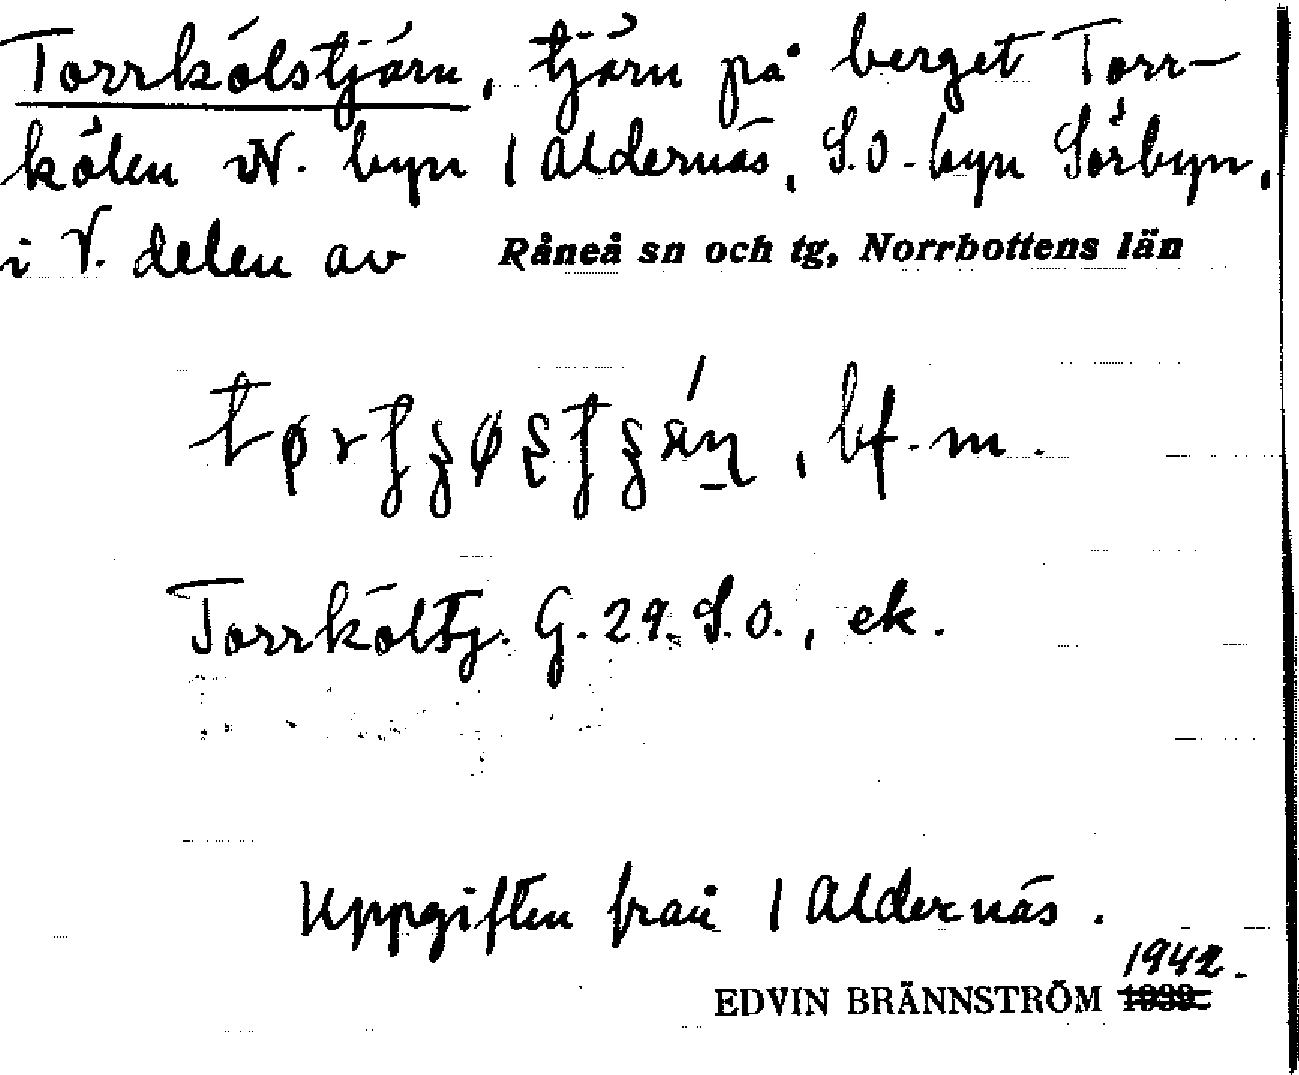 Torrkölstjärn, tjärn på berget Torr-
kölen N. byn 1 Aldernäs, S.O. byn Sörbyn,
i V. delen av Råneå sn och tg, Norrbottens län
bf. m.
Torrköltj. G. 29. S.O., ek.
Uppgiften från 1 Aldernäs.
1942.
EDVIN BRÄNNSTRÖM